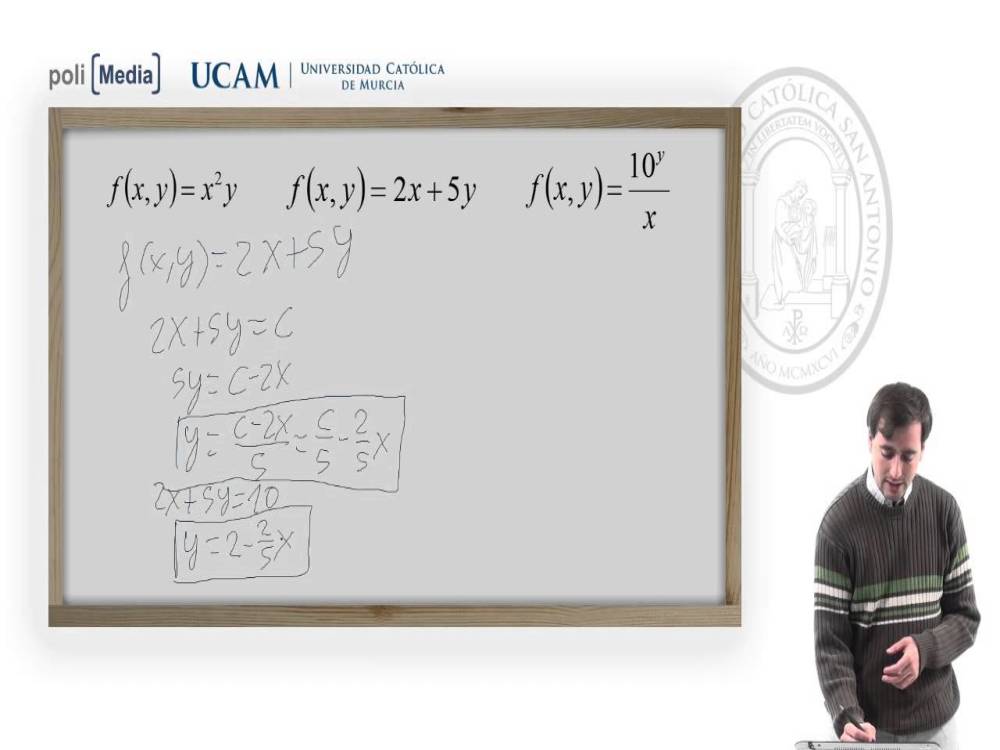 poli [Media] UCAM | UNIVERSIDAD CATÓLICA
DE MURCIA
CATÓLICA SAN ANTONIO
IN LIBERTATEM VOCATI
AÑO MCMXCVI
f(x, y) = x²y f(x, y) = 2x + 5y f(x, y) = 10^y / x
f(x,y)=2x+5y
2x+5y=C
5y=C-2x
y= (C-2x)/5 = C/5 - 2/5 x
2x+5y=10
y=2- 2/5 x